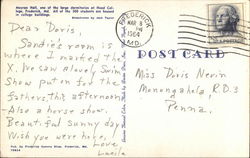 Meyran Hall, one of the large dormitories at Hood College, Frederick, Md. All of the 300 students are housed in college buildings.
Ektachrome by Bob Taylor
Dear Doris,
Sandie's room is
where I marked the
X. We saw a lovely Swim
Show put on for the
fathers this afternoon.
Also a horse show.
Beautiful sunny day.
Wish you were here.
Love,
Luella
FREDERICK
MAR 8
PM
1964
MD.
POST CARD
Miss Doris Nevin
Monongahela, R.D. 3
Penna.